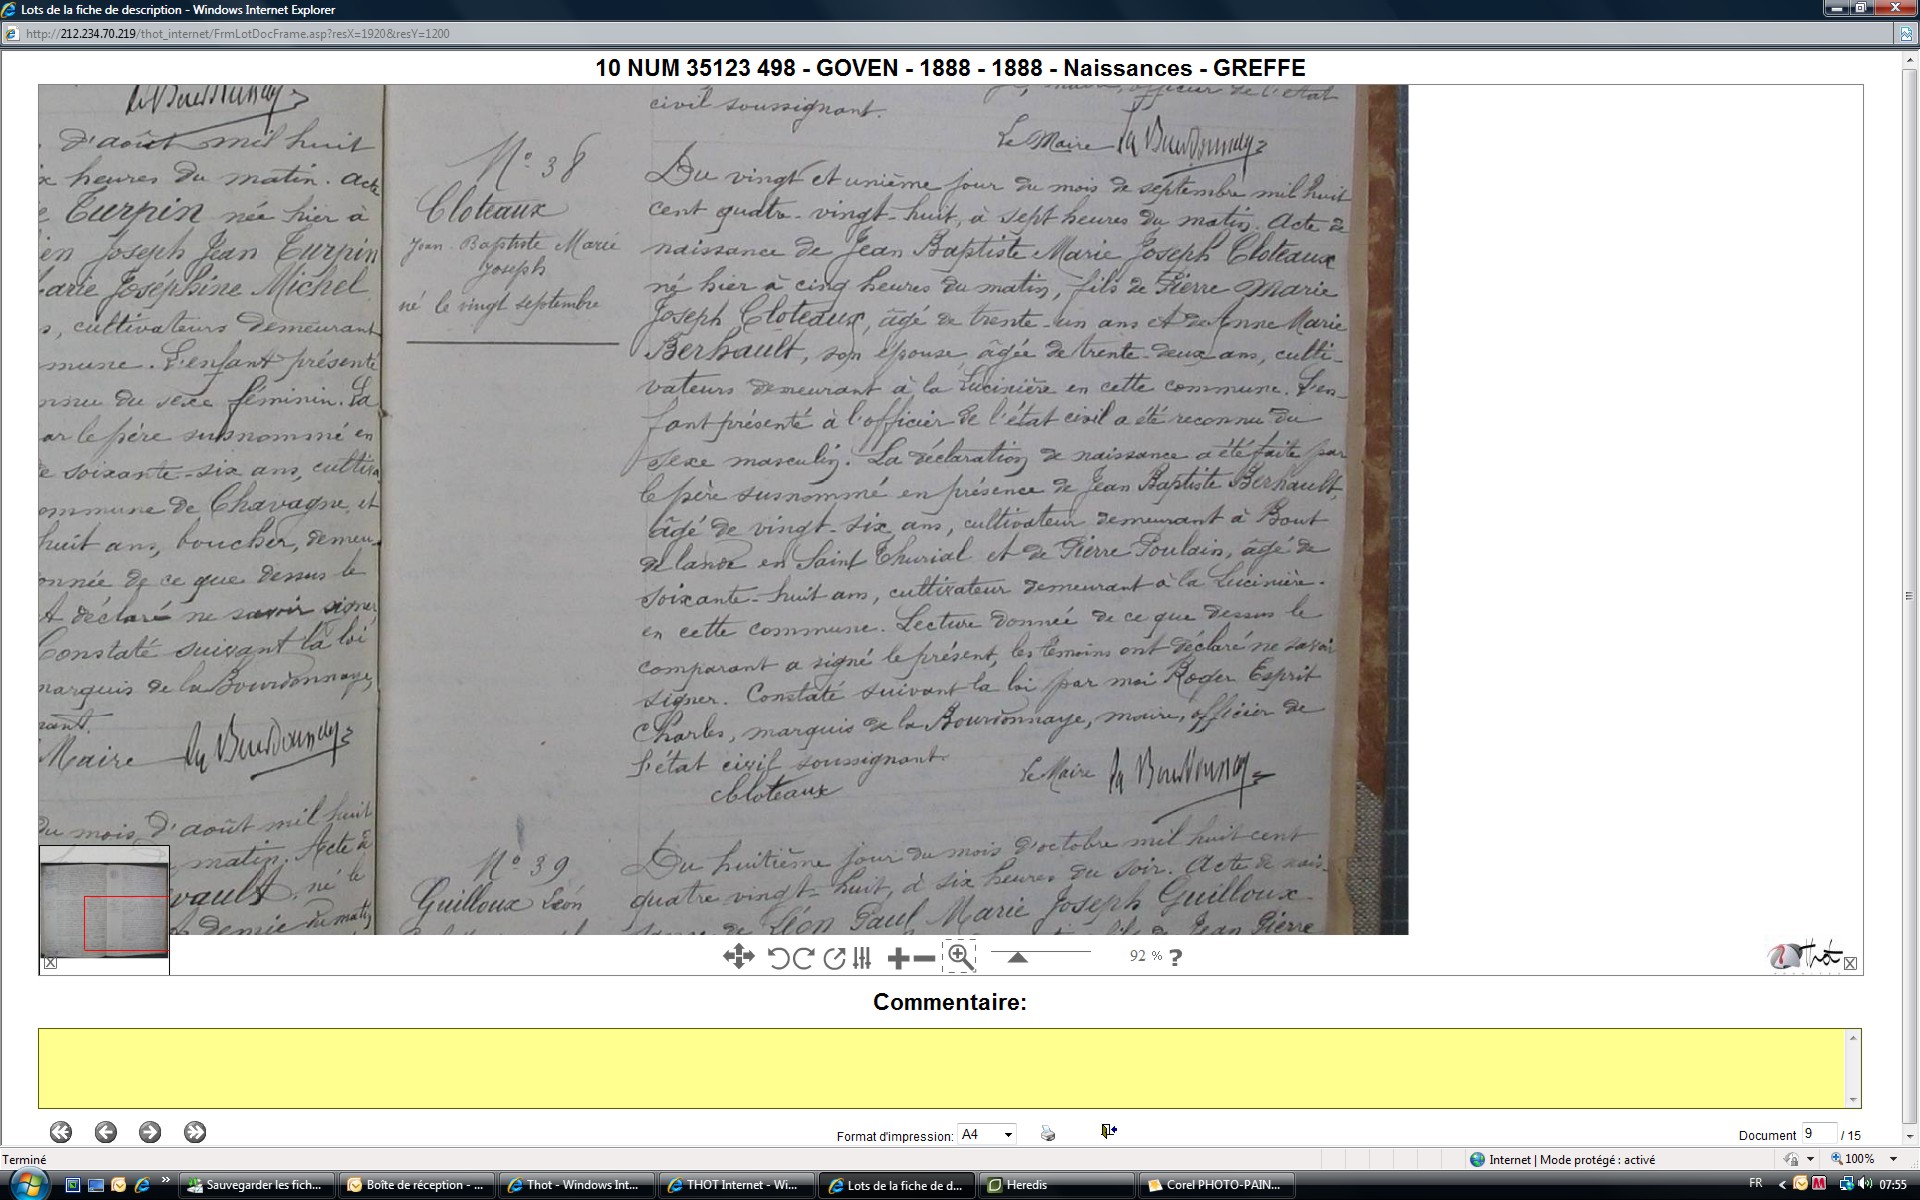 Lots de la fiche de description - Windows Internet Explorer
http://212.234.70.219/thot_internet/FrmLotDocFrame.asp?resX=1920&resY=1200
10 NUM 35123 498 - GOVEN - 1888 - 1888 - Naissances - GREFFE
d'août mil huit
x heures du matin. Acte
Turpin née hier à
en Joseph Jean Turpin
arie Joséphine Michel
s, cultivateurs demeurant
mune. L'enfant présenté
nnu du sexe féminin. La
ar le père susnommé en
e soixante-six ans, cultiva
ommune de Chavagne, et
huit ans, boucher, demeu-
onnée de ce que dessus le
déclaré ne savoir signer
Constaté suivant la loi
marquis de la Bourdonnaye,
nant.
Maire La Bourdonnaye
du mois d'août mil huit
matin. Acte
vault, né le
demie du matin
civil soussignant.
officier de l'état
Le Maire La Bourdonnaye
N° 38
Cloteaux
Jean Baptiste Marie
Joseph
né le vingt septembre
Du vingt et unième jour du mois de septembre mil huit
cent quatre-vingt-huit, à sept heures du matin. Acte de
naissance de Jean Baptiste Marie Joseph Cloteaux
né hier à cinq heures du matin, fils de Pierre Marie
Joseph Cloteaux, âgé de trente-un ans et de Anne Marie
Berhault, son épouse, âgée de trente-deux ans, culti-
vateurs demeurant à la Lucinière en cette commune. L'en-
fant présenté à l'officier de l'état civil a été reconnu du
sexe masculin. La déclaration de naissance a été faite par
le père susnommé en présence de Jean Baptiste Berhault,
âgé de vingt-six ans, cultivateur demeurant à Bout
de lande en Saint Thurial et de Pierre Poulain, âgé de
soixante-huit ans, cultivateur demeurant à la Lucinière
en cette commune. Lecture donnée de ce que dessus le
comparant a signé le présent, les témoins ont déclaré ne savoir
signer. Constaté suivant la loi par moi Roger Esprit
Charles, marquis de la Bourdonnaye, maire, officier de
l'état civil soussignant.
Cloteaux
Le Maire La Bourdonnaye
N° 39
Guilloux Léon
Du huitième jour du mois d'octobre mil huit cent
quatre vingt-huit, à six heures du soir. Acte de nais-
sance de Léon Paul Marie Joseph Guilloux
fils de Jean Pierre
92 % ?
Thot
Commentaire:
Format d'impression: A4
Document 9 / 15
Terminé
Internet | Mode protégé : activé
100%
Sauvegarder les fich...
Boîte de réception - ...
Thot - Windows Int...
THOT Internet - Wi...
Lots de la fiche de d...
Heredis
Corel PHOTO-PAIN...
FR
07:55